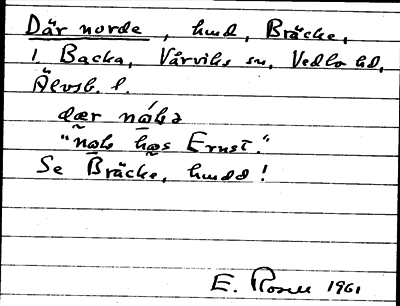 Där norde, hmd, Bräcke,
1 Backa, Vårviks sn, Vedbo hd,
Älvsb. l.
dær
"nols hos Ernst."
Se Bräcke, hmdd!
E. Rosell 1961